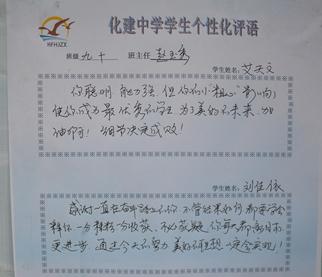 化建中学学生个性化评语
HFHJZX
班级 九十 班主任 赵玉秀
学生姓名: 艾天文
你聪明 能力强 但你的小"粗心"影响
你成为最优秀的学生 为了美好的未来 加
油啊! 细节决定成败!
学生姓名: 刘佳依
感谢一直在奋斗的你 不管结果如何 都要
一分耕耘一分收获 不必质疑 你每天都
更进步 通过今天的努力 美好的理想一定会实现!